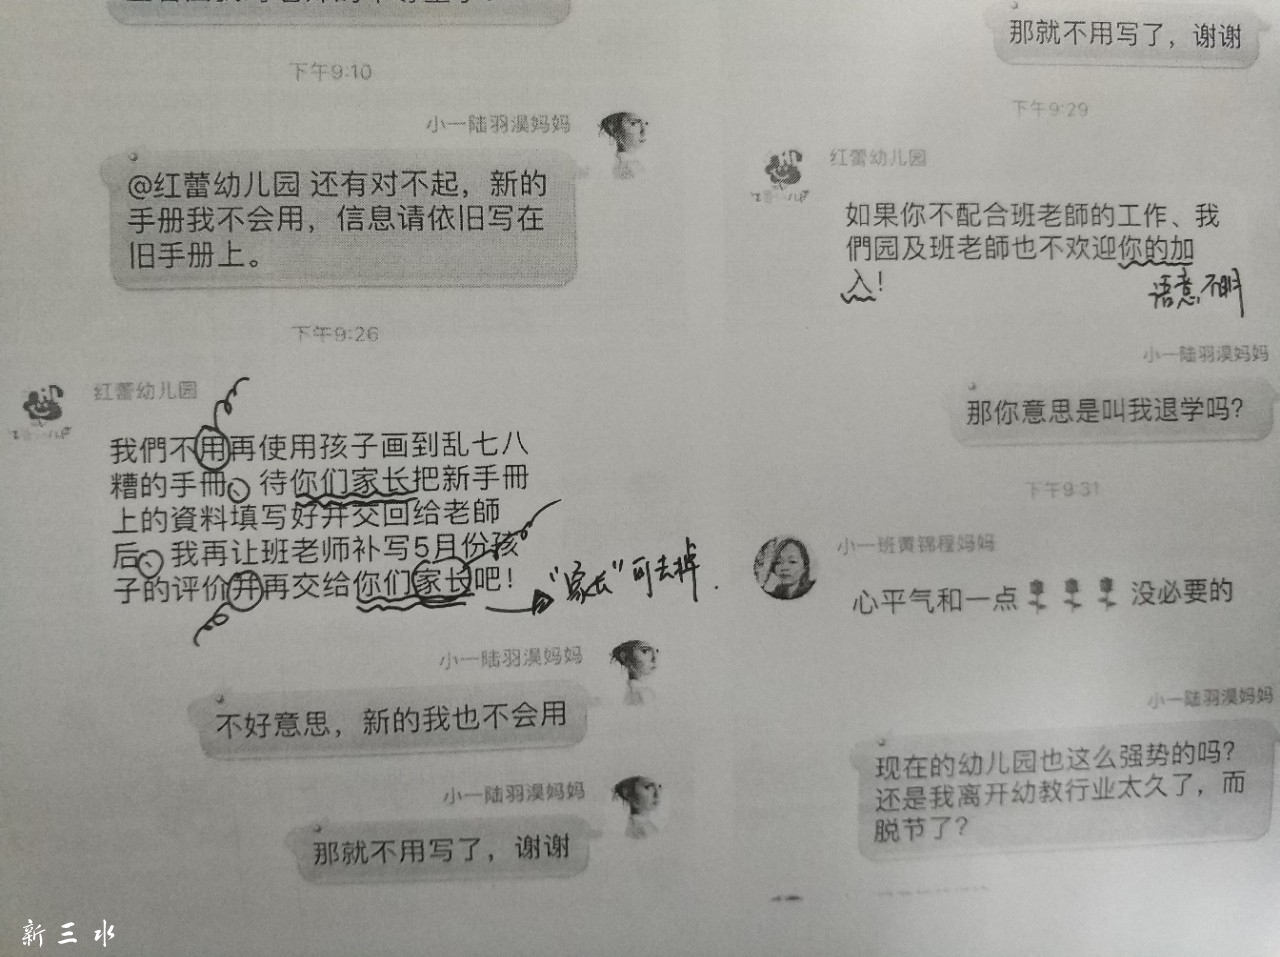 下午9:10
小一陆羽淏妈妈
@红蕾幼儿园 还有对不起，新的
手册我不会用，信息请依旧写在
旧手册上。
下午9:26
红蕾幼儿园
我們不用再使用孩子画到乱七八
糟的手冊、待你们家长把新手冊
上的資料填写好并交回给老師
后、我再让班老师补写5月份孩
子的评价并再交给你们家长吧！
"家长"可去掉.
小一陆羽淏妈妈
不好意思，新的我也不会用
小一陆羽淏妈妈
那就不用写了，谢谢
那就不用写了，谢谢
下午9:29
红蕾幼儿园
如果你不配合班老師的工作、我
們园及班老師也不欢迎你的加
入！
语意不明
小一陆羽淏妈妈
那你意思是叫我退学吗？
下午9:31
小一班黄锦程妈妈
心平气和一点 没必要的
小一陆羽淏妈妈
现在的幼儿园也这么强势的吗？
还是我离开幼教行业太久了，而
脱节了？
新三水